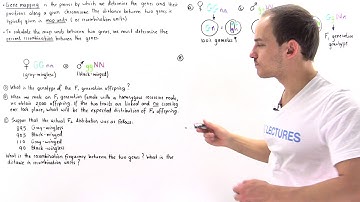 • Gene mapping is the process by which we determine the genes and their
positions along a given chromosome. The distance between two genes is
typically given in map units (or recombination units)
• To calculate the map units between two genes, we must determine the
percent recombination between the genes
♀ GGnn ⊗ ♂ ggNN
(gray-wingless) (black-winged)
Ⓐ What is the genotype of the F₁ generation offspring?
Ⓑ When we mate an F₁ generation female with a homozygous recessive male,
we obtain 2000 offspring. If the two traits are linked and no crossing
over took place, what will be the expected distribution of F₂ offspring
Ⓒ Suppose that the actual F₂ distribution was as follows:
895 Gray-wingless
905 Black-winged
110 Gray-winged
90 Black-wingless
What is the recombination frequency between the two genes? What is the
distance in recombination units?
Ⓐ ♀ GGnn
100% gametes
GgNn
F₁ generation
genotype
Ⓑ
LECTURES